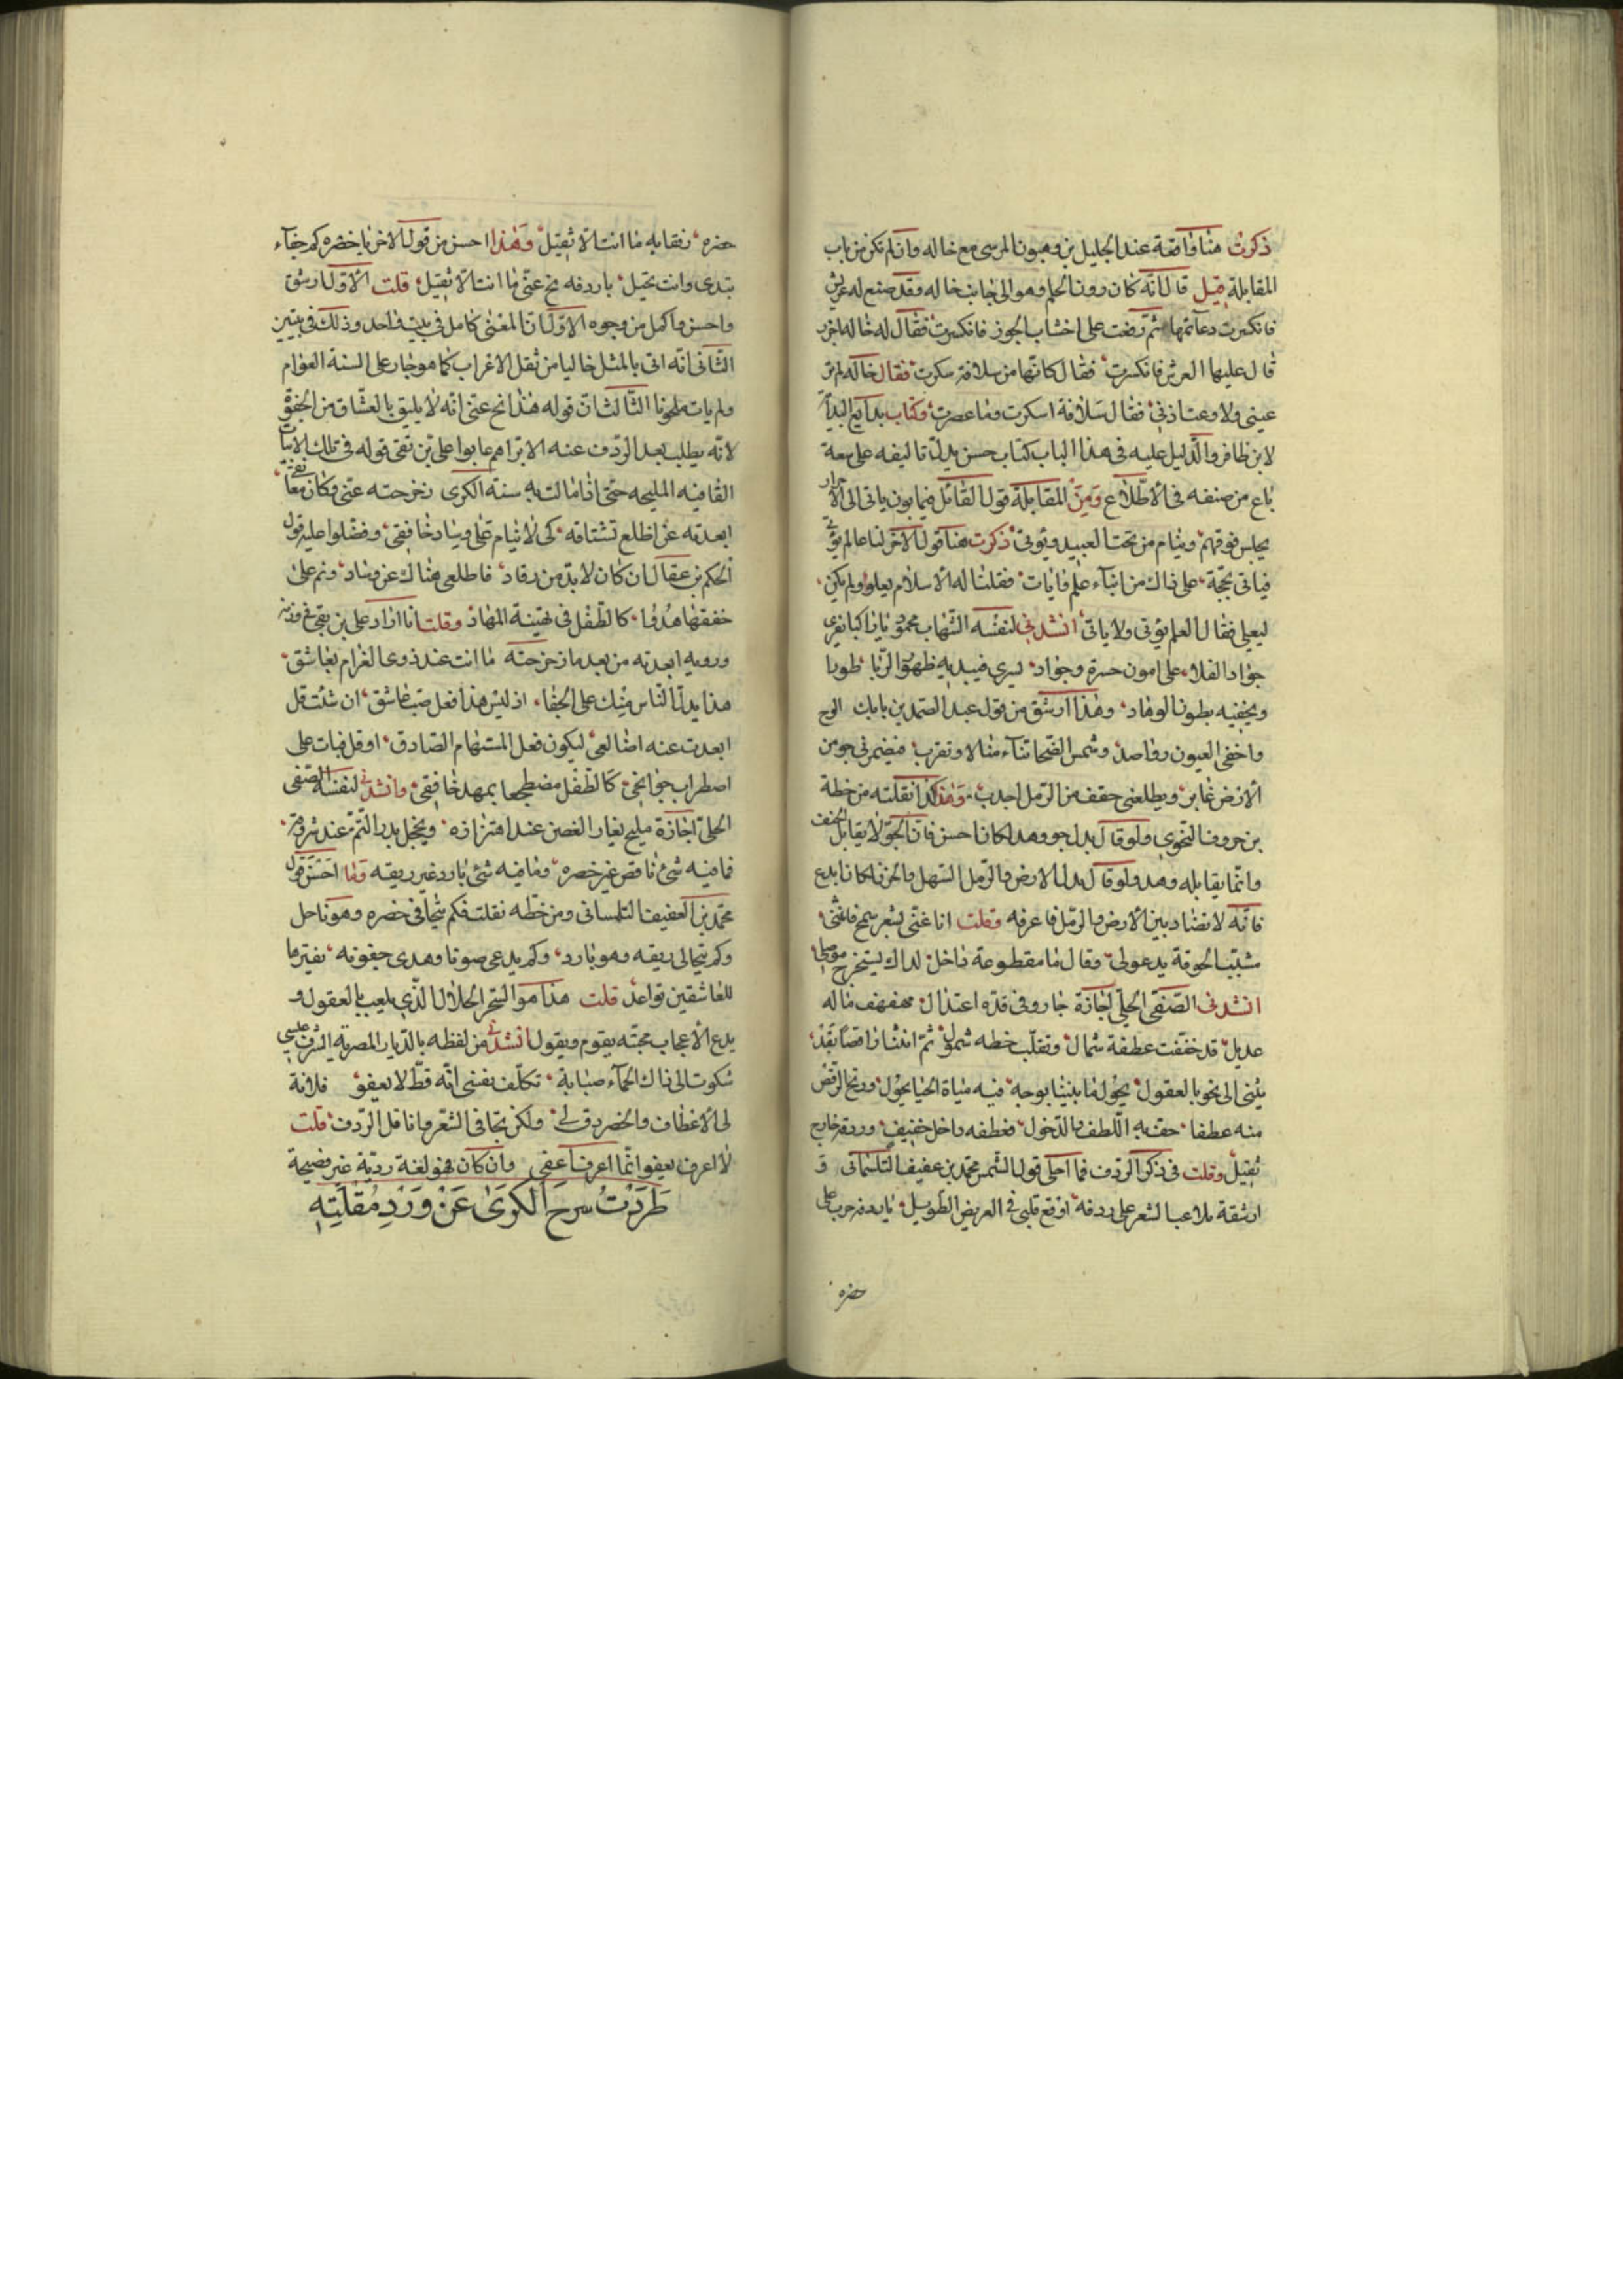 ذكرت هنا واقعة عند الجليل بن وهبون المرسى مع خاله وان لم تكن من باب
المقابلة قيل قال انه كان دون الحلم وهو الى جانب خاله وقد صنع له عريش
فانكسرت دعائمها ثم رضت على اخشاب الجوز فانكسرت فقال له خاله اجز
قال عليها العرش فانكسرت فقال كانها من سلافة سكرت فقال خاله لم تر
عينى ولا وعت اذنى فقال سلافة اسكرت وما عصرت وكتاب بدايع البدأ
لابن ظافر والدليل عليه فى هذا الباب كتاب حسن يدل تاليفه على سعة
باع من صنفه فى الاطلاع ومن المقابلة قول القائل فيما بون ياتى الى الاحرار
يجلس فوقهم وينام من تحت العبيد ويؤتى ذكرت هنا قول الاخر لنا عالم يؤتى
فياتى بحجة على ذاك من انباء علم وايات فقلنا له الاسلام يعلو ولم يكن
ليعلى فقال العلم يؤتى ولا ياتى انشدنى لنفسه الشهاب محمود يا راكبا يفرى
جواد الفلا على امون حسرة وجواد يسرى فيبديه ظهور الربا طورا
ويخفيه بطون الوهاد وهذا ارشق من قول عبد الصمد بن بابك الوح
واخفى العيون رواصد وشمس الضحى تناء منالا وتقرب فيضمرنى جو من
الارض غابر ويطلعنى حقف من الرمل احدب وهذا كذا نقلته من خطة
بن خروف النحوى ولو قال بدل جو وهد لكان احسن فان الجو لا يقابل الحقف
وانما يقابله وهد ولو قال بدل الارض والرمل السهل والحزن لكان ابدع
فانه لا تضاد بين الارض والرمل فاعرفه وقلت انا غنى بشعر سمج فانثنى
مشبب الجوقة يدعو لى وقال ما مقطوعة داخل لذاك ليستخرج موصلى
انشدنى الصفى الحلى اجازة جار وفى قده اعتدال مهفهف ماله
عديل قد خففت عطفه شمال وثقلت خطه شمول ثم انثنى راقصا بقد
يثنى الى نحو بالعقول يجول ما بيننا بوجه فيه مياه الحيا يجول ورنح الرقص
منه عطفا حف به اللطف والدخول فعطفه داخل خفيف وردفه خارج
ثقيل وقلت فى ذكر الردف فما احلى قول الشمس محمد بن عفيف التلمسانى
ارشقة ملاعب الشعر على ردفه اوقع قلبى فى العريض الطويل يا ردفه جرت على
خصره
خصره رفقا به ما انت الا ثقيل وهذا احسن من قول الاخر يا خصره كم جفاء
تبدى وانت نحيل يا ردفه نح عنى ما انت الا ثقيل قلت الاول ارشق
واحسن واكمل من وجوه الاول ان المعنى كامل فى بيت واحد وذلك فى بيتين
الثانى انه اتى بالمثل خاليا من ثقل الاعراب كما هو جار على السنة العوام
ولم يات ملحونا الثالث ان قوله هذا نح عنى انه لا يليق بالعشاق من الجفوة
لانه يطلب بعد الردف عنه الا تراهم عابوا على بن تقى قوله فى تلك الابيات
القافيه المليحه حتى اذا مالت به سنة الكرى زحزحته عنى وكان معانقى
ابعدته عن اضلع تشتاقه كى لا ينام على وساد خافقى وفضلوا عليه قول
الحكم بن عقال ان كان لا بد من رقاد فاضلعى هناك عن وساد ونم على
خفقها هدوا كالطفل فى تهنينة المهاد وقلت انا اراد على بن بقى فى وزنه
ورويه ابعدته من بعد ما زحزحته ما انت عند ذوى الغرام بعاشق
هذا يدل الناس منك على الجفاء اذ ليس هذا فعل صب عاشق ان شئت قل
ابعدت عنه اضالعى ليكون فعل المستهام الصادق او قل فبات على
اضطراب جوانحى كالطفل مضطجعا بمهد خافقى وانشدنى لنفسه الصفى
الحلى اجازة مليح يغار الغصن عند اهتزازه ويخجل بدر التم عند شروقه
فما فيه شئ ناقص غير خصره وما فيه شئ بارد غير ريقه وما احسن قول
محمد بن العفيف التلمسانى ومن خطه نقلت فكم يتجافى خصره وهو ناحل
وكم يتحالى ريقه وهو بارد وكم يدعى صوتا وهدى جفونه بفترها
للعاشقين تواعد قلت هذا هو السحر الحلال الذى يلعب بالعقول و
يدع الاعجاب محبته يقوم ويقول انشدنى من لفظه بالديار المصرية الشرف عيسى
شكوت الى ذاك الحماء صبابة تكلف نفسى انه قط لا يعفو فلانة
لى الاعطاف والخصر رق لى ولكن تجافى الشعر واثاقل الردف قلت
لا اعرف يعفو انما اعرف اعفى وان كان فهو لغة ردية غير فصيحة
طردت سرح الكرى عن ورد مقلته